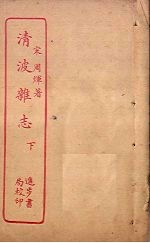 宋周煇著
清波雜志
下
進步書
局校印